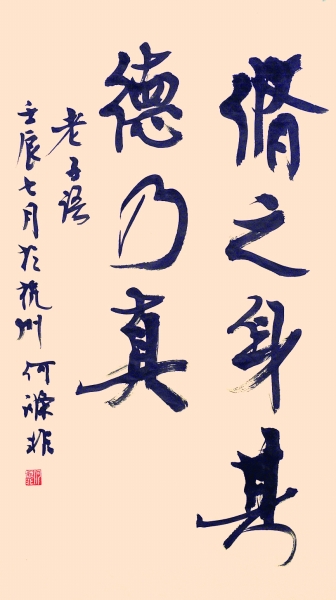 脩之身其
德乃真
老子语
壬辰七月于杭州 何涤非